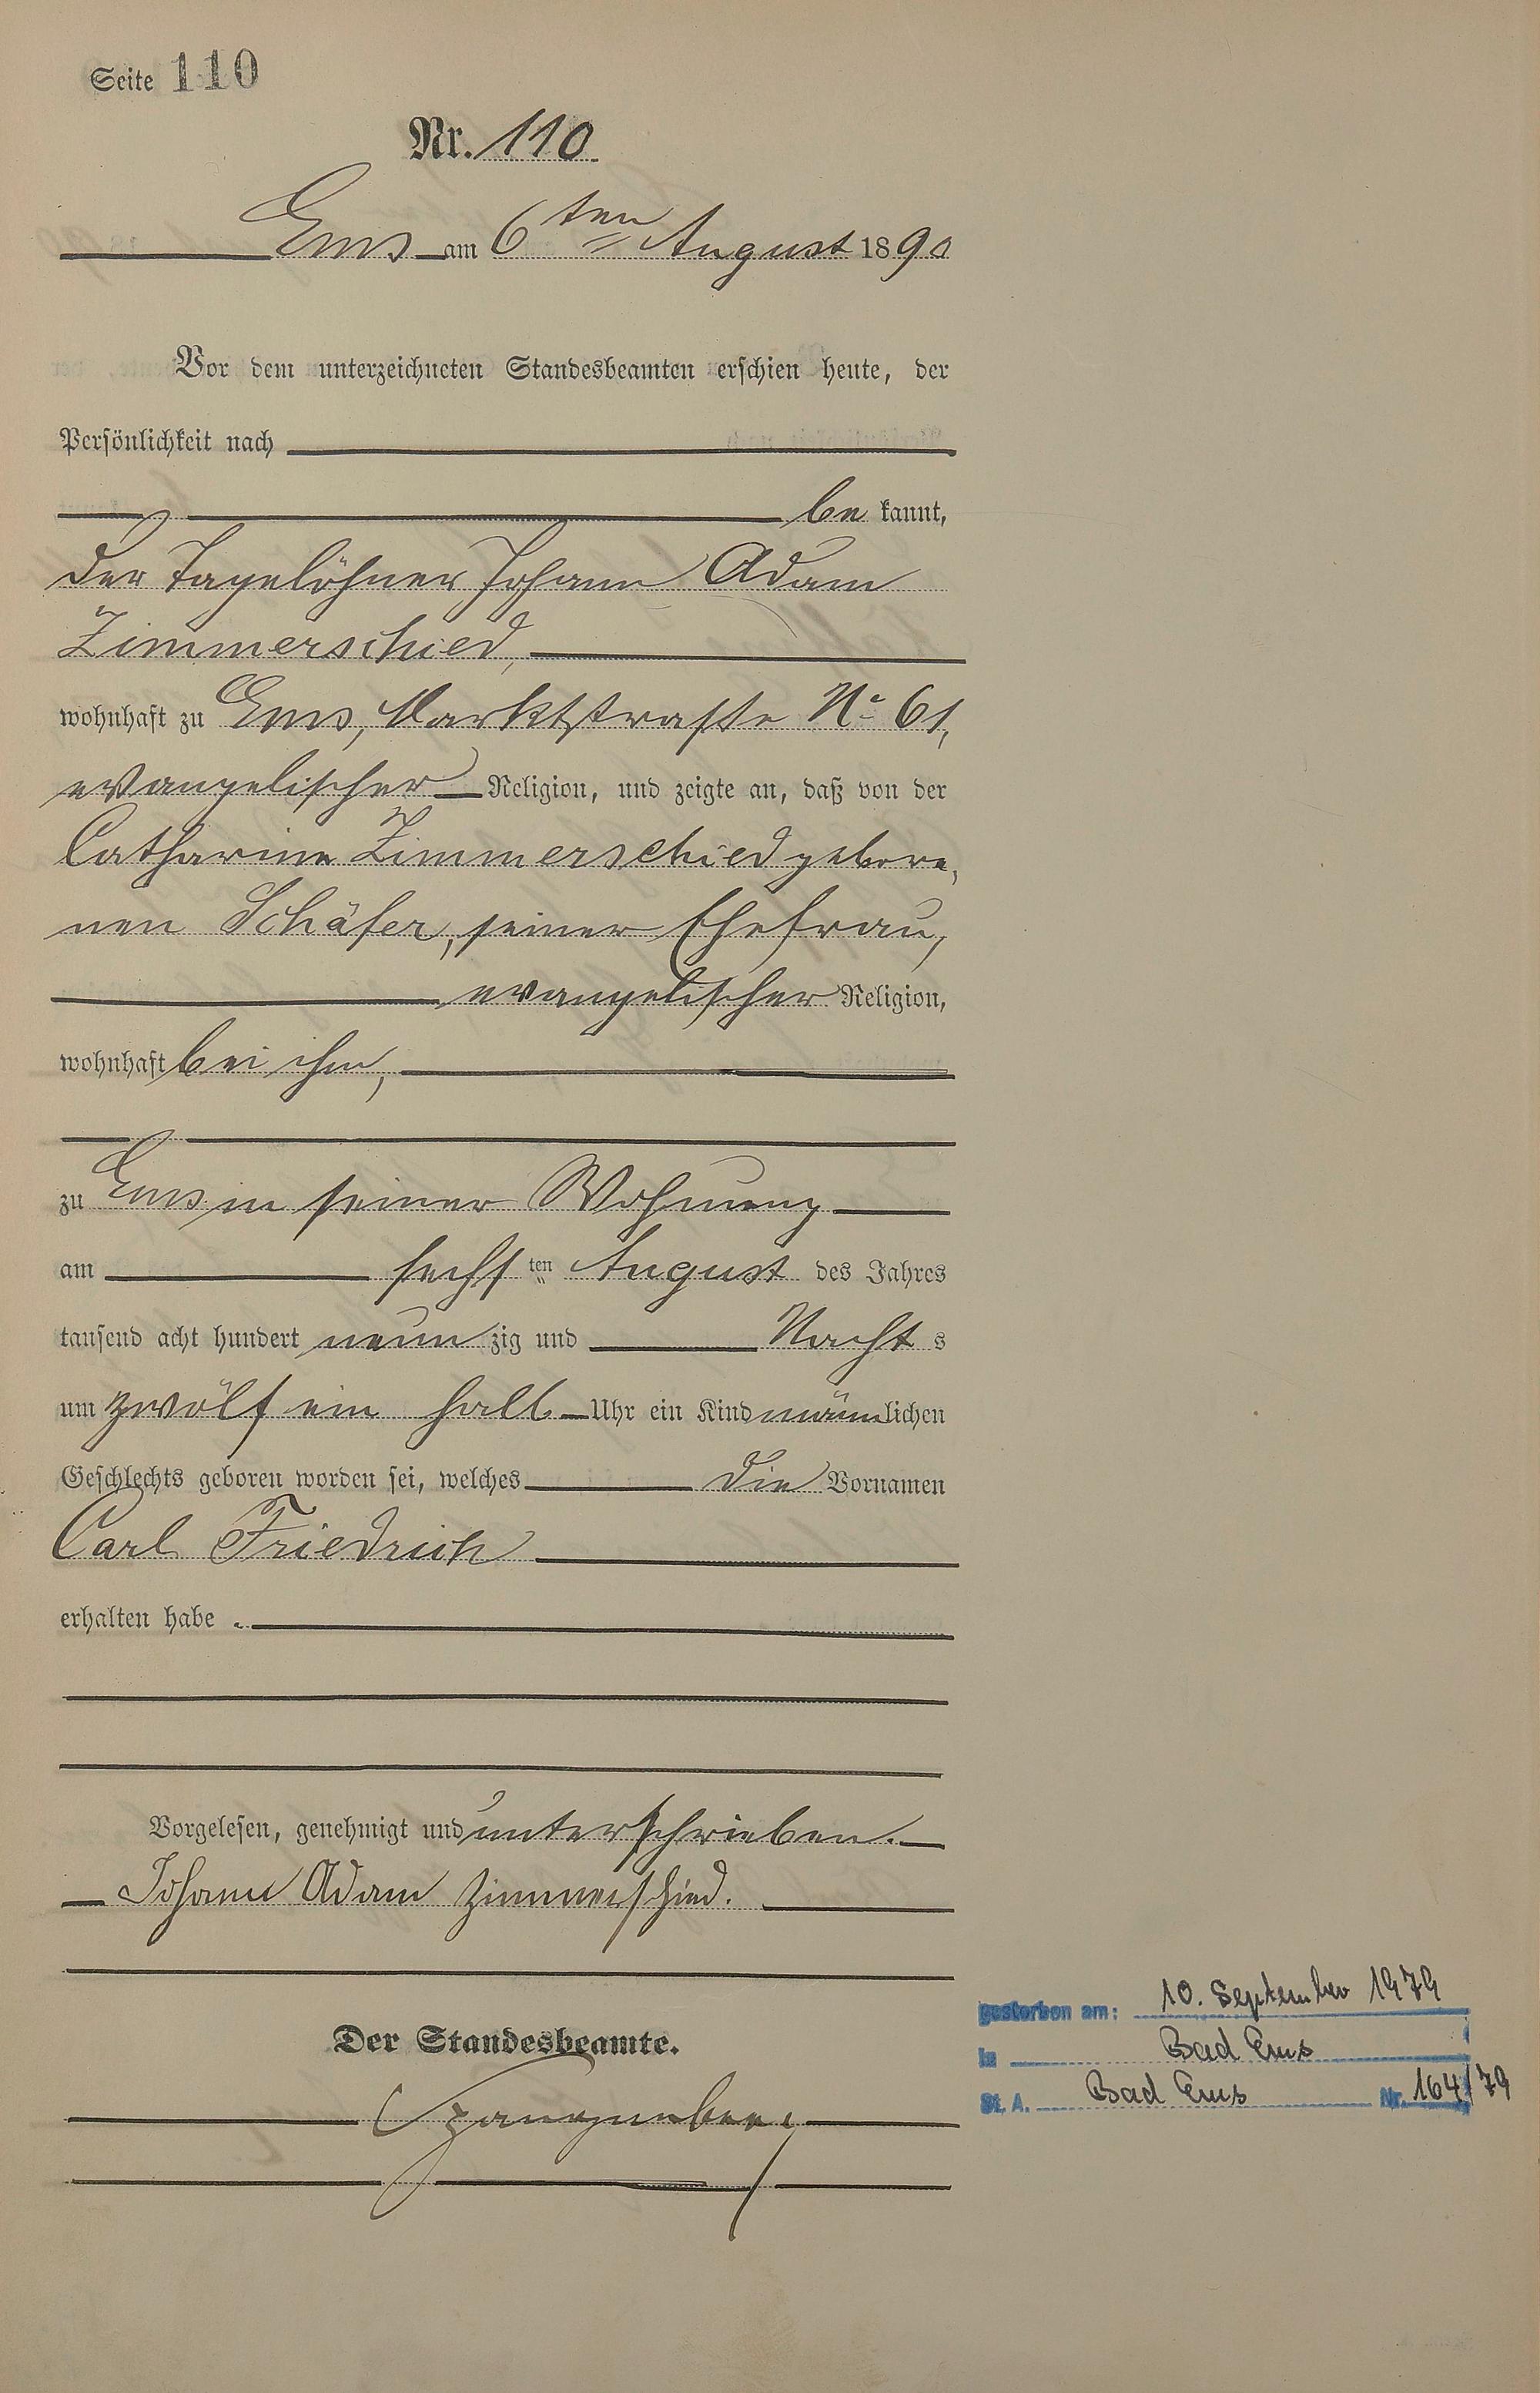 Seite 110
Nr. 110
Ems am 6ten August 1890
Vor dem unterzeichneten Standesbeamten erschien heute, der
Persönlichkeit nach
be kannt,
der Tagelöhner Johann Adam
Zimmerschied,
wohnhaft zu Ems, Marktstraße No 61,
evangelischer Religion, und zeigte an, daß von der
Catharine Zimmerschied gebore,
nen Schäfer, seiner Ehefrau,
evangelischer Religion,
wohnhaft bei ihm,
zu Ems in seiner Wohnung
am sechsten August des Jahres
tausend acht hundert neunzig und Nachts
um zwölf ein halb Uhr ein Kind männlichen
Geschlechts geboren worden sei, welches die Vornamen
Carl Friedrich
erhalten habe.
Vorgelesen, genehmigt und unterschrieben.
Johann Adam Zimmerschied.
Der Standesbeamte.
gestorben am: 10. September 1979
in Bad Ems
St. A. Bad Ems Nr. 164/79